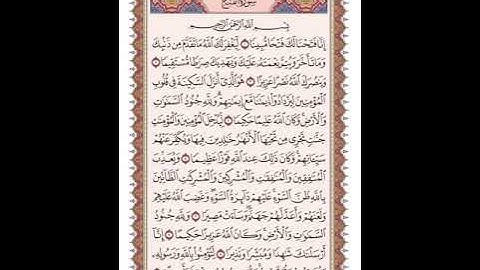 سُورَةُ الفَتْحِ
بِسْمِ ٱللَّهِ ٱلرَّحْمَٰنِ ٱلرَّحِيمِ
إِنَّا فَتَحْنَا لَكَ فَتْحًا مُّبِينًا ۝١ لِّيَغْفِرَ لَكَ ٱللَّهُ مَا تَقَدَّمَ مِن ذَنۢبِكَ
وَمَا تَأَخَّرَ وَيُتِمَّ نِعْمَتَهُۥ عَلَيْكَ وَيَهْدِيَكَ صِرَٰطًا مُّسْتَقِيمًا ۝٢
وَيَنصُرَكَ ٱللَّهُ نَصْرًا عَزِيزًا ۝٣ هُوَ ٱلَّذِىٓ أَنزَلَ ٱلسَّكِينَةَ فِى قُلُوبِ
ٱلْمُؤْمِنِينَ لِيَزْدَادُوٓا۟ إِيمَٰنًا مَّعَ إِيمَٰنِهِمْ وَلِلَّهِ جُنُودُ ٱلسَّمَٰوَٰتِ
وَٱلْأَرْضِ وَكَانَ ٱللَّهُ عَلِيمًا حَكِيمًا ۝٤ لِّيُدْخِلَ ٱلْمُؤْمِنِينَ وَٱلْمُؤْمِنَٰتِ
جَنَّٰتٍ تَجْرِى مِن تَحْتِهَا ٱلْأَنْهَٰرُ خَٰلِدِينَ فِيهَا وَيُكَفِّرَ عَنْهُمْ
سَيِّـَٔاتِهِمْ وَكَانَ ذَٰلِكَ عِندَ ٱللَّهِ فَوْزًا عَظِيمًا ۝٥ وَيُعَذِّبَ
ٱلْمُنَٰفِقِينَ وَٱلْمُنَٰفِقَٰتِ وَٱلْمُشْرِكِينَ وَٱلْمُشْرِكَٰتِ ٱلظَّآنِّينَ
بِٱللَّهِ ظَنَّ ٱلسَّوْءِ عَلَيْهِمْ دَآئِرَةُ ٱلسَّوْءِ وَغَضِبَ ٱللَّهُ عَلَيْهِمْ
وَلَعَنَهُمْ وَأَعَدَّ لَهُمْ جَهَنَّمَ وَسَآءَتْ مَصِيرًا ۝٦ وَلِلَّهِ جُنُودُ
ٱلسَّمَٰوَٰتِ وَٱلْأَرْضِ وَكَانَ ٱللَّهُ عَزِيزًا حَكِيمًا ۝٧ إِنَّآ
أَرْسَلْنَٰكَ شَٰهِدًا وَمُبَشِّرًا وَنَذِيرًا ۝٨ لِّتُؤْمِنُوا۟ بِٱللَّهِ وَرَسُولِهِۦ